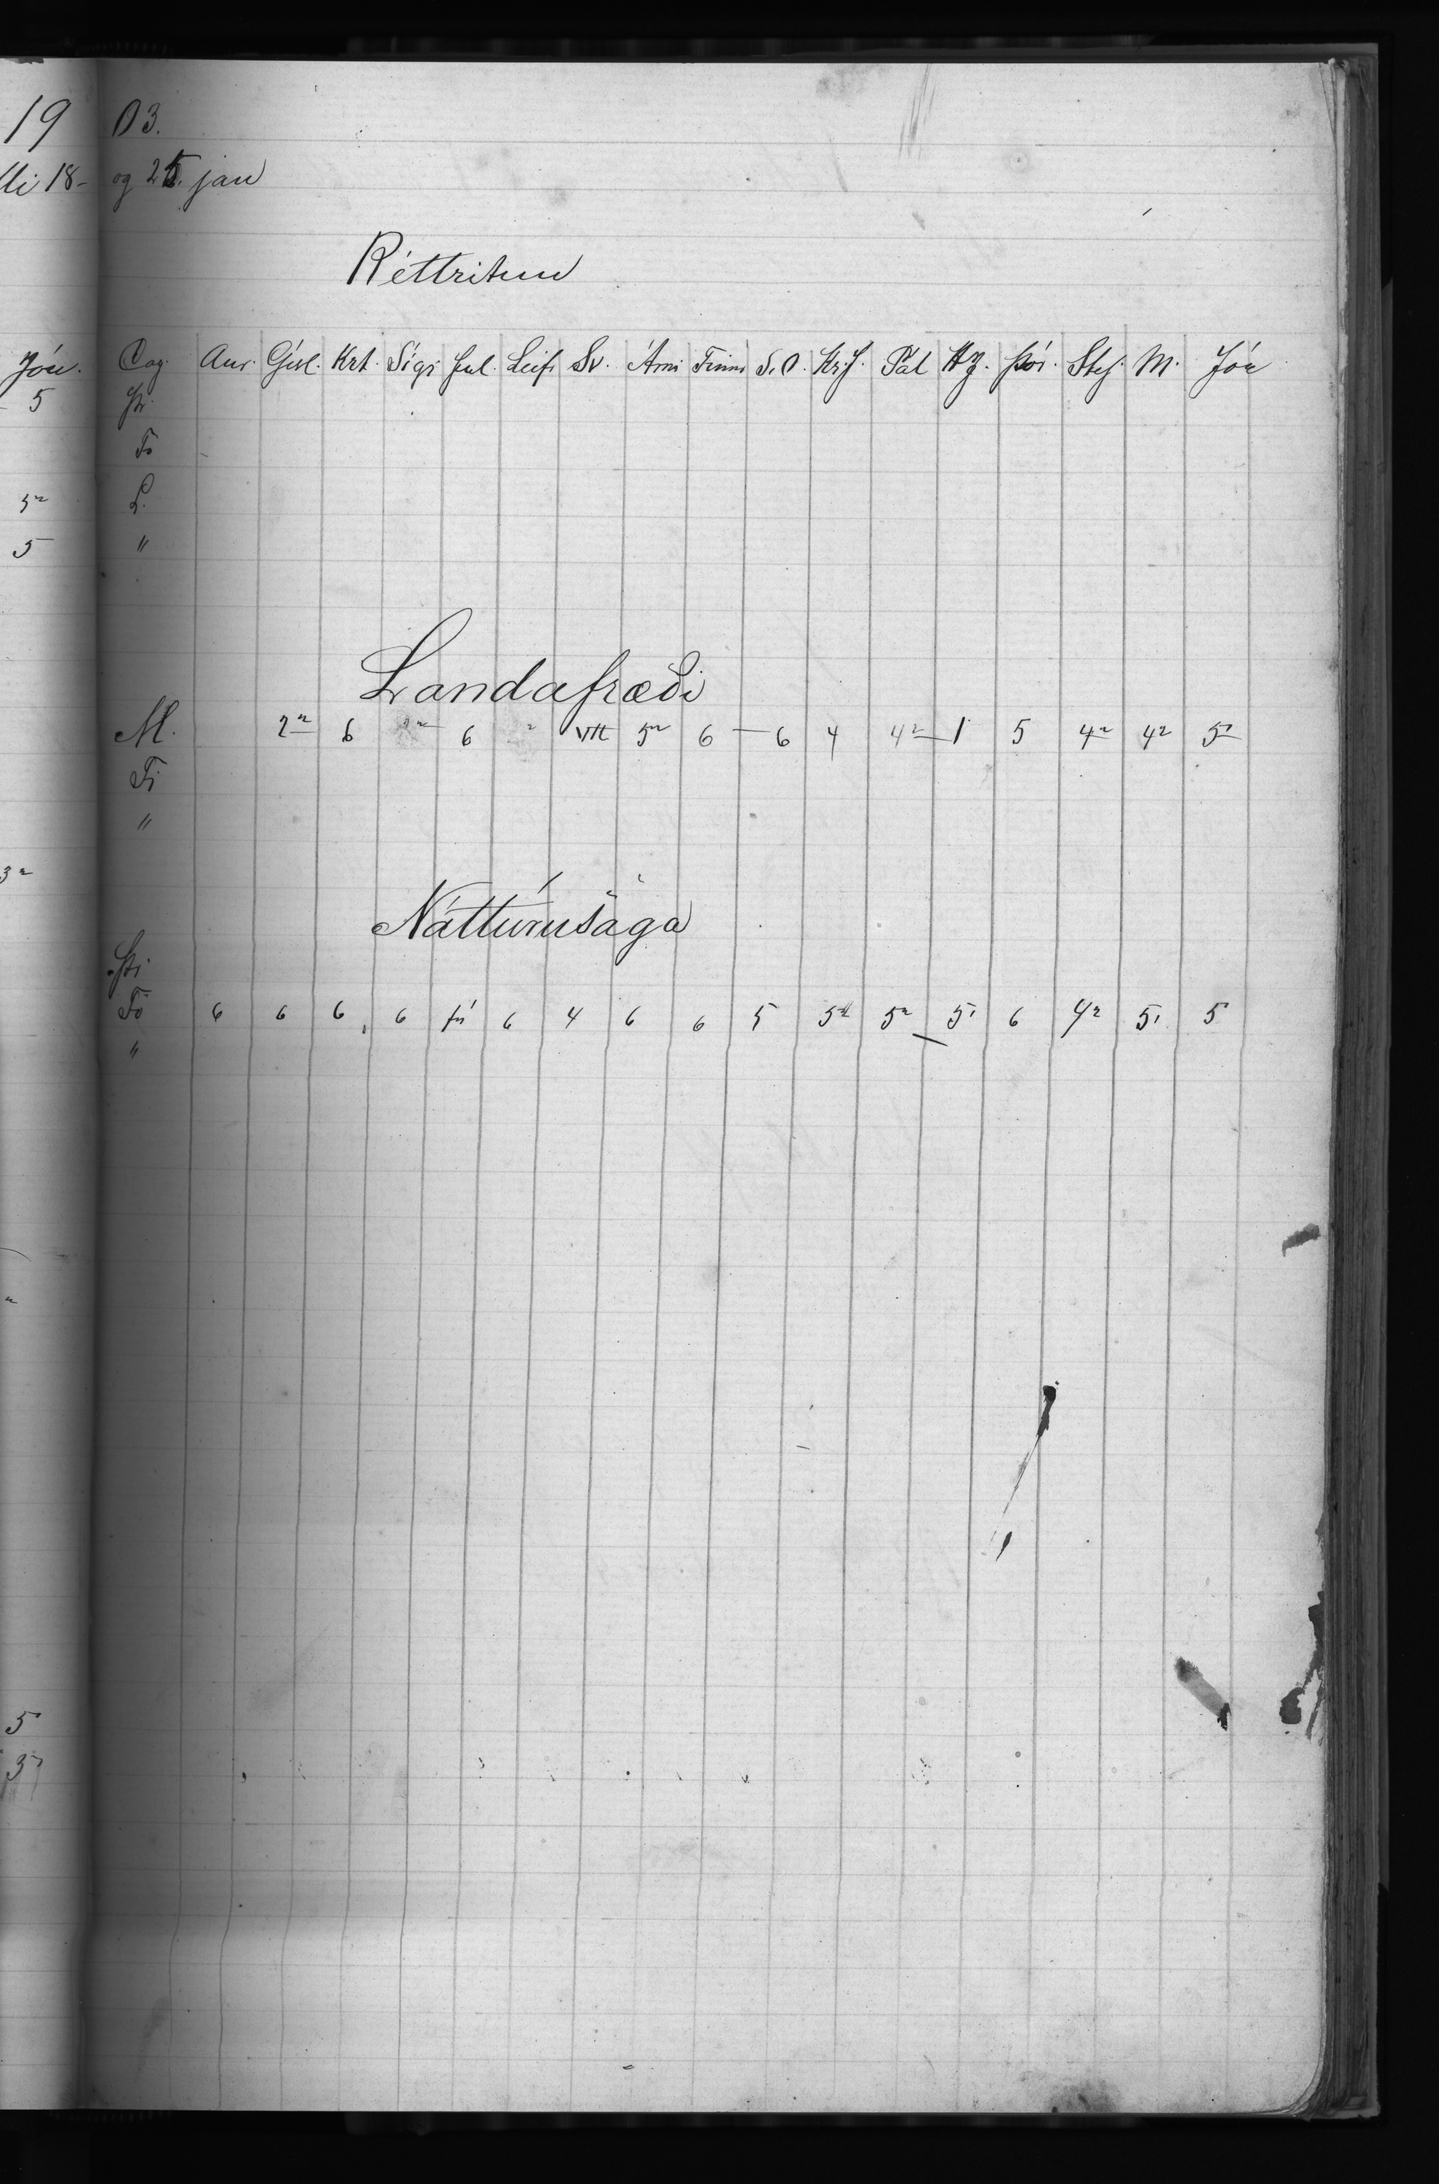 19 03.
lli 18- og 25. jan
Réttritun
Jón. Dag. Aur. Gísl. Krt. Sígr Júl. Leifr Sv. Árni Finnr S.O. Kr.J. Pál HJ. Þór. Stef. M. Jón
5 Þr.
Fö
5² L.
5 "
Landafræði
M. 2² 6 6 5² 6 — 6 4 4² — 1 5 4² 4² 5¹
Fi
"
3²
Náttúrusaga
Þri
Fö 6 6 6 6 6 4 6 6 5 5² 5² 5¹ 6 4² 5¹ 5
"
5
3